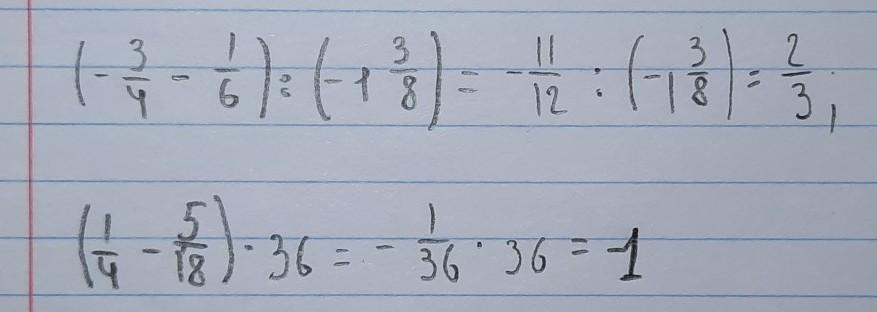 (-3/4 - 1/6) : (-1 3/8) = -11/12 : (-1 3/8) = 2/3;
(1/4 - 5/18) · 36 = -1/36 · 36 = -1